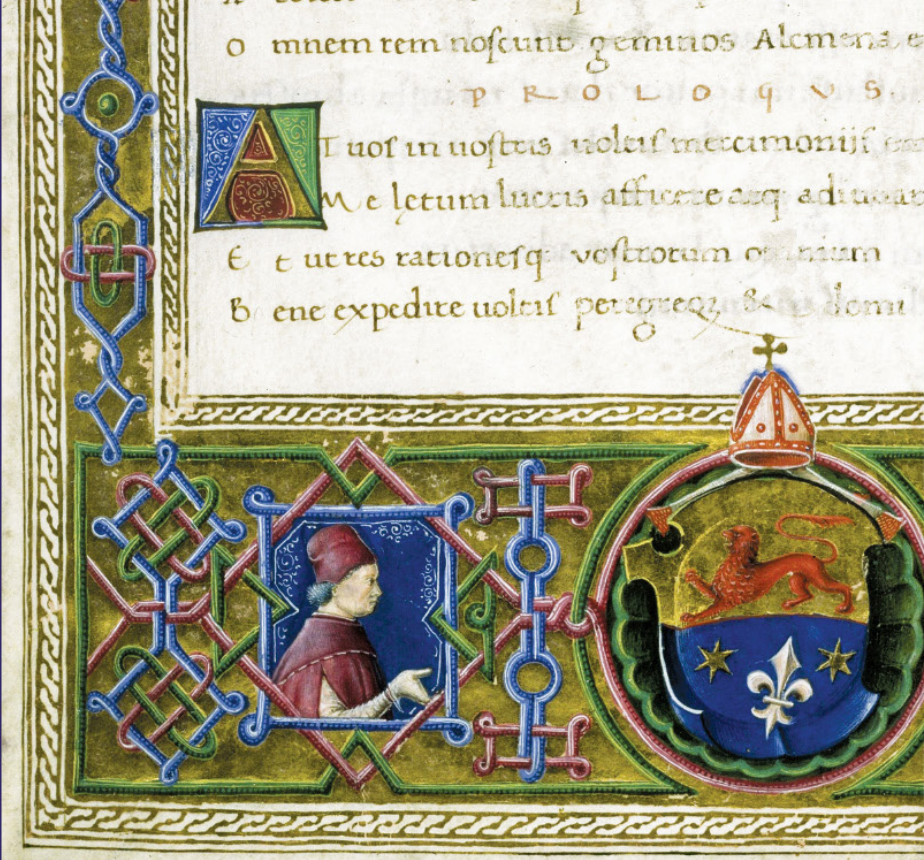 O mnem rem noscunt geminos Alcmena e
PROLOQVS
AT uos in uostris uoltis mercimonijs
Me letum lucris afficere atq adiuua
E t ut res rationesq vostrorum omnium
B ene expedire uoltis peregreqz & domi